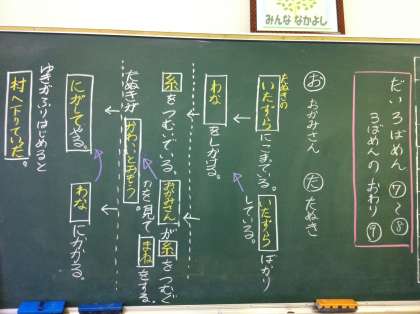 みんな なかよし
だい3ばめん ⑦〜⑧
3ばめんの おわり ⑨
た たぬき
お おかみさん
たぬきの
いたずらにこまっている。
いたずらばかり
している。
わなをしかける。
糸をつむいでいる。
おかみさんが糸をつむぐ
のを見てまねをする。
たぬきがかわいいとおもう
にがしてやる。
わなにかかる。
ゆきがふりはじめると
村へ下りていった。